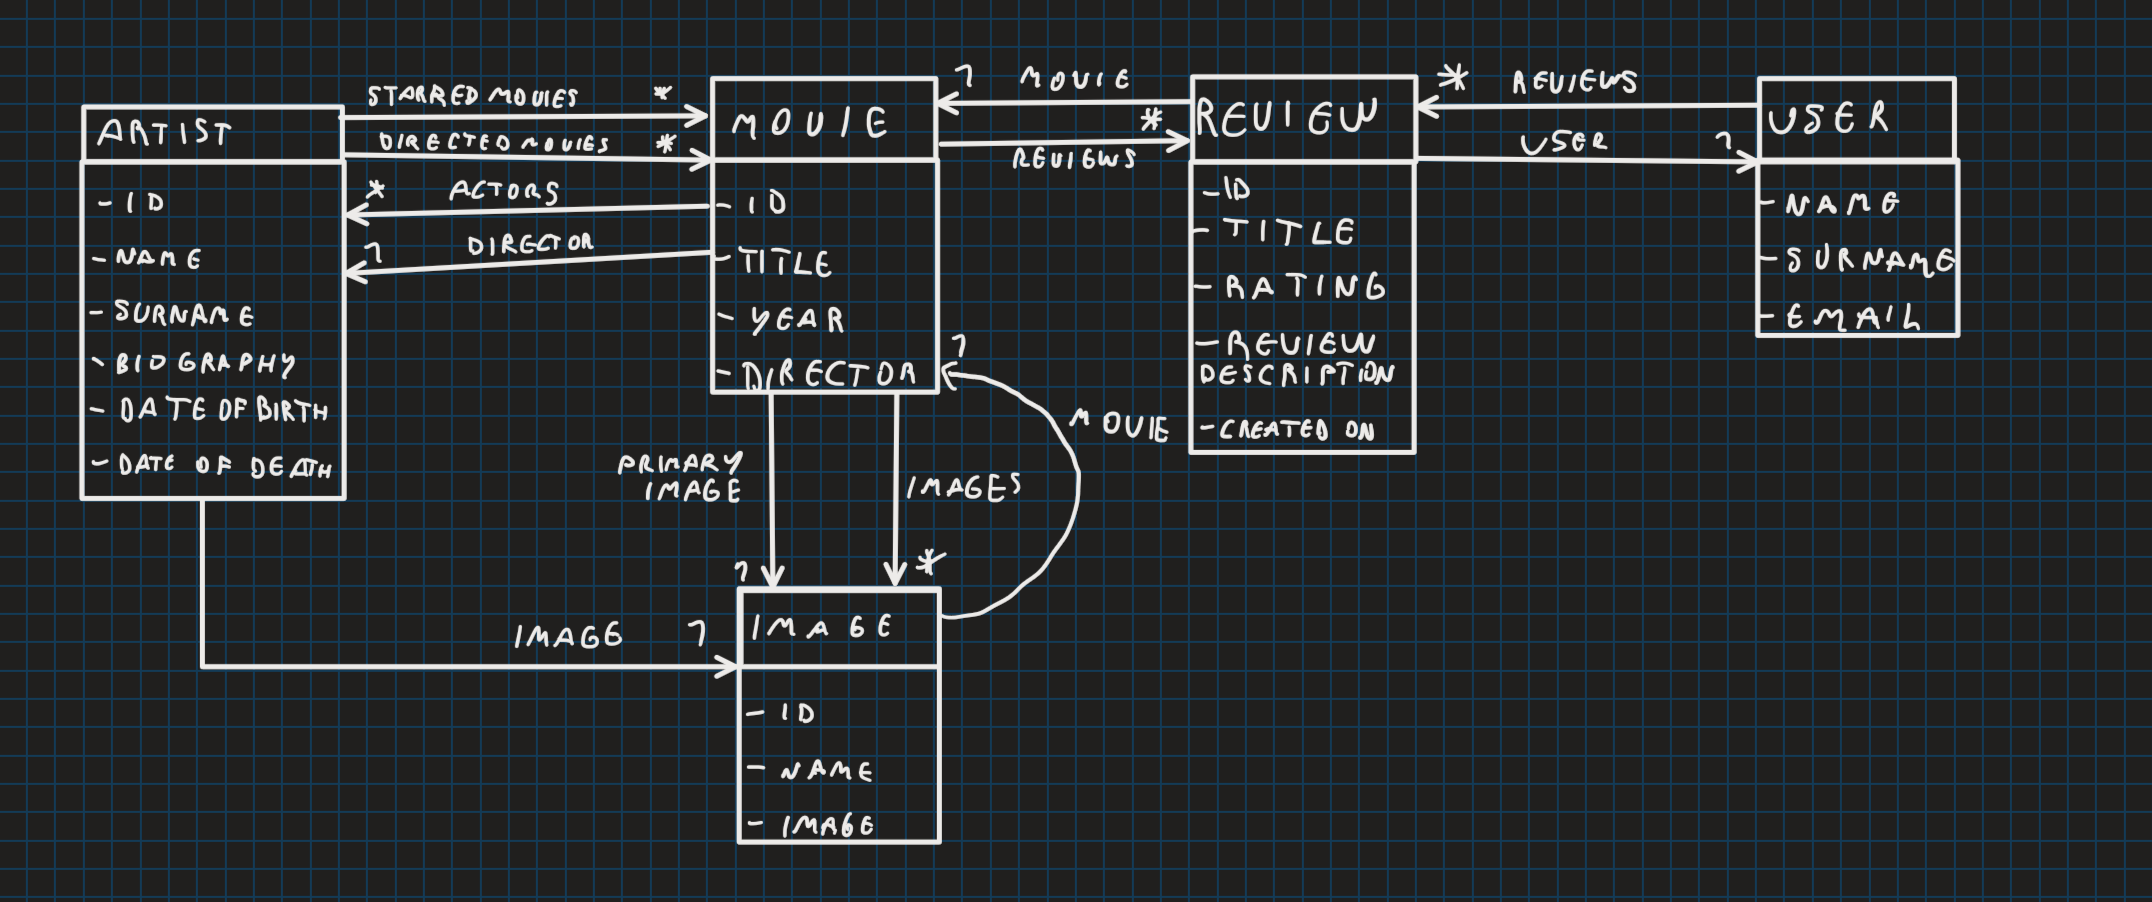 ARTIST
- ID
- NAME
- SURNAME
- BIOGRAPHY
- DATE OF BIRTH
- DATE OF DEATH
STARRED MOVIES *
DIRECTED MOVIES *
* ACTORS
1 DIRECTOR
MOVIE
- ID
- TITLE
- YEAR
- DIRECTOR
1 MOVIE
*
REVIEWS
REVIEW
- ID
- TITLE
- RATING
- REVIEW
DESCRIPTION
- CREATED ON
* REVIEWS
USER 1
USER
- NAME
- SURNAME
- EMAIL
PRIMARY
IMAGE
1
IMAGES
*
1
MOVIE
IMAGE 1
IMAGE
- ID
- NAME
- IMAGE